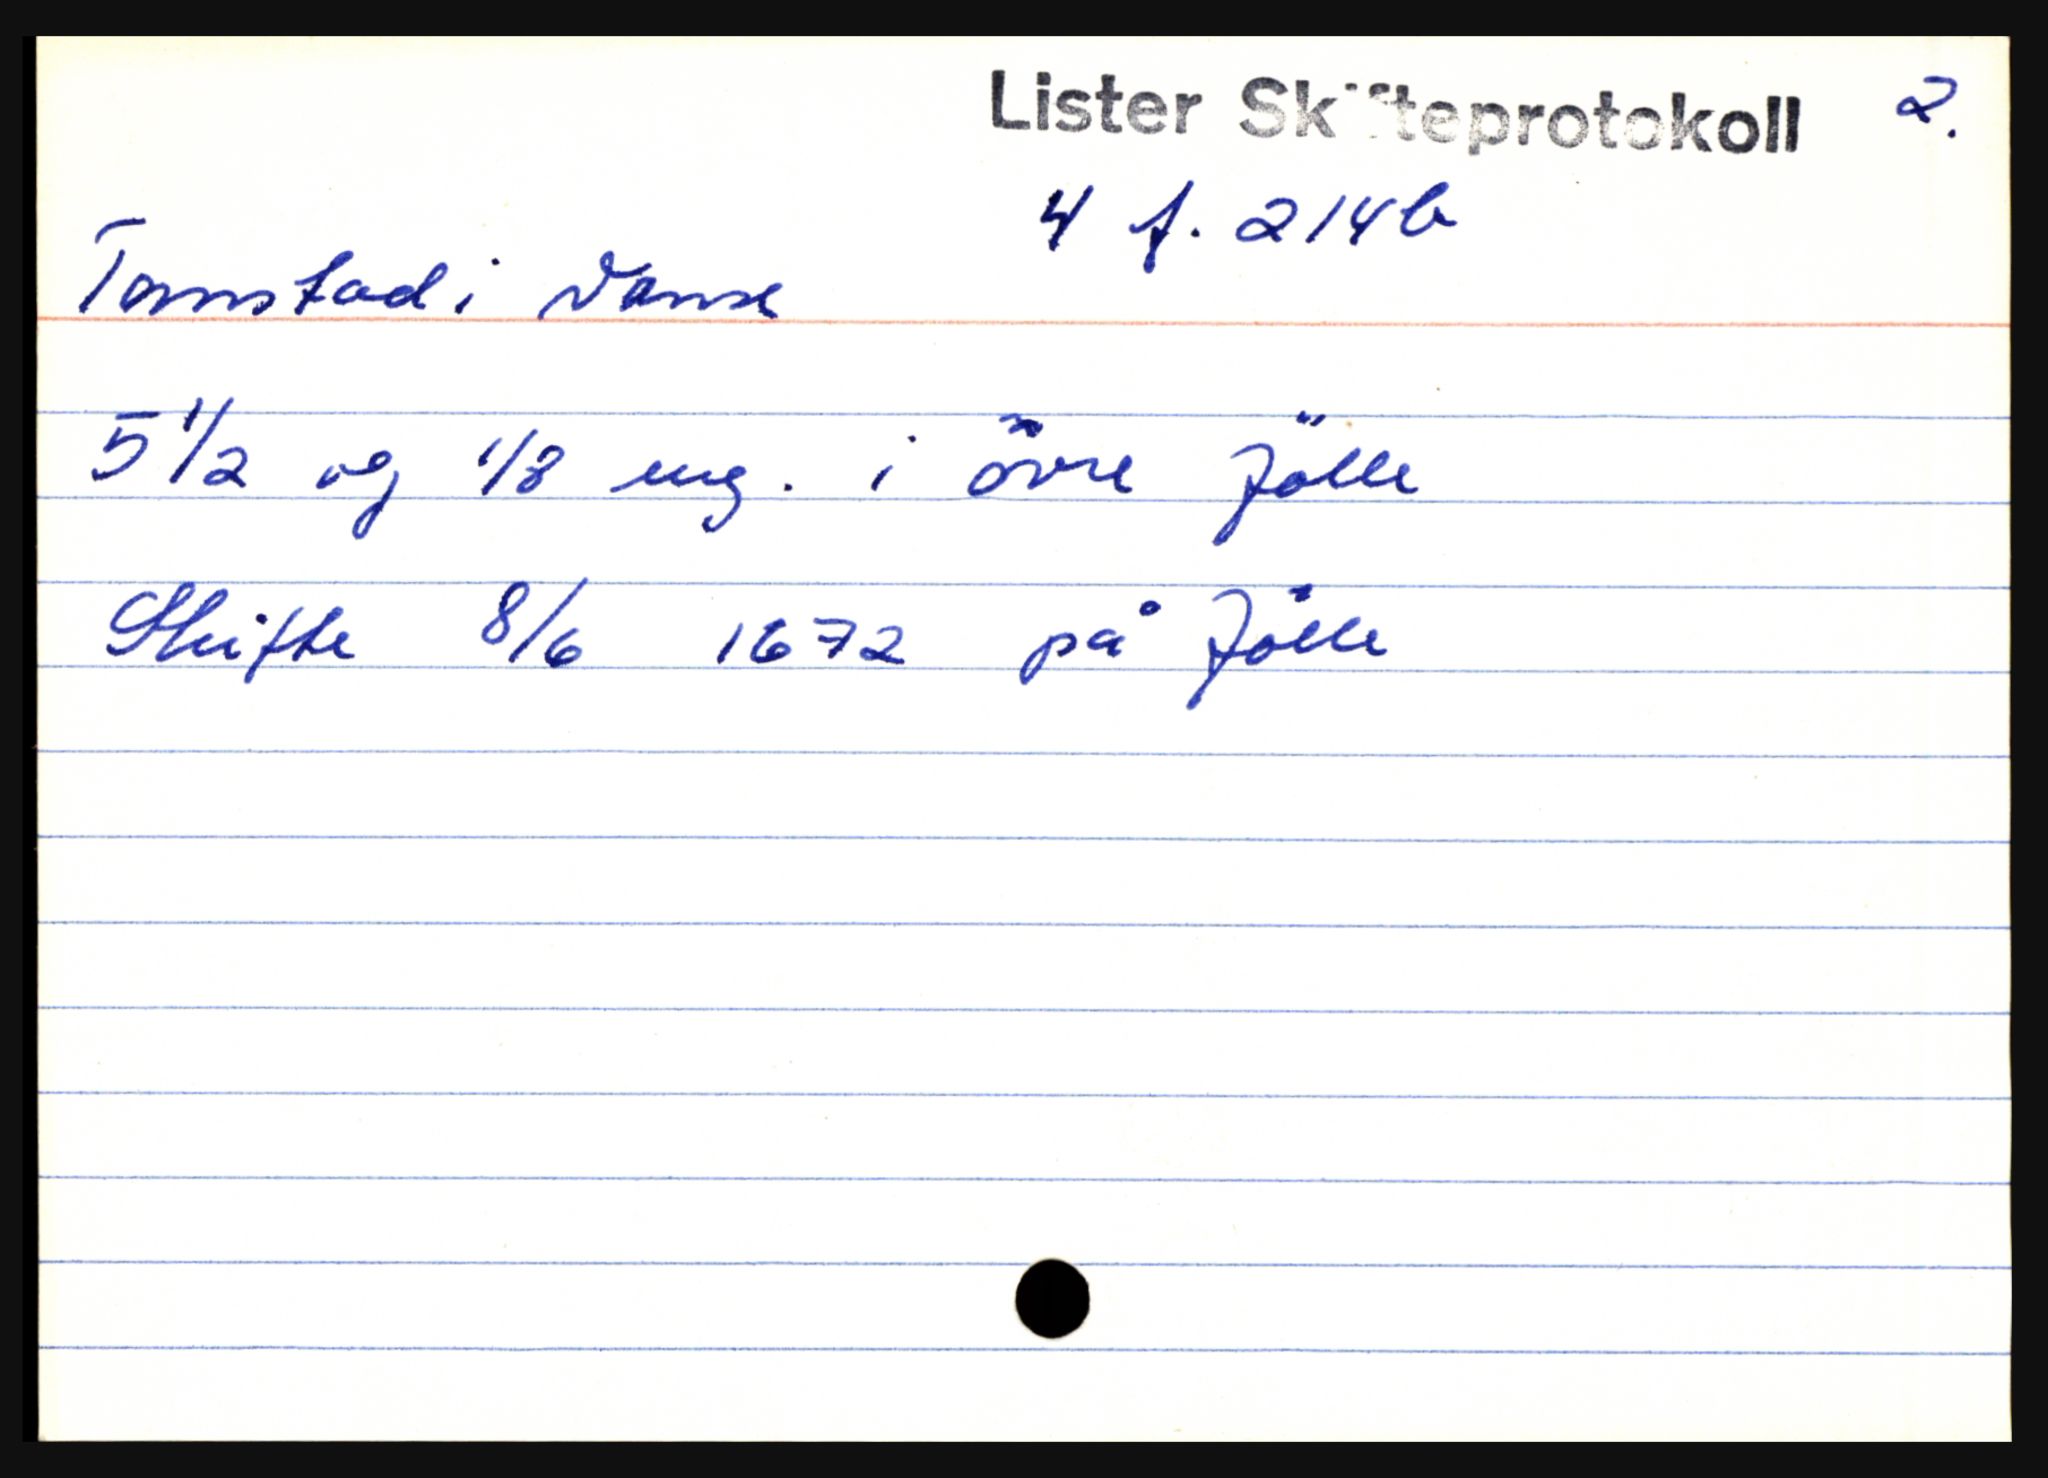 Lister Skifteprotokoll 2.
4 f. 214b
Tomstad i Vanse
5 1/2 og 1/8 eng. i övre Jölle
Skifte 8/6 1672 på Jölle